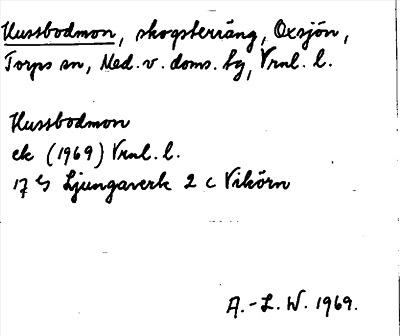 Hussbodmon, skogsterräng, Oxsjön,
Torps sn, Med. v. doms. hg, Vrnl. l.
Hussbodmon
ek (1969) Vrnl. l.
17 G Ljungaverk 2 c Vikörn
A.-L. W. 1969.